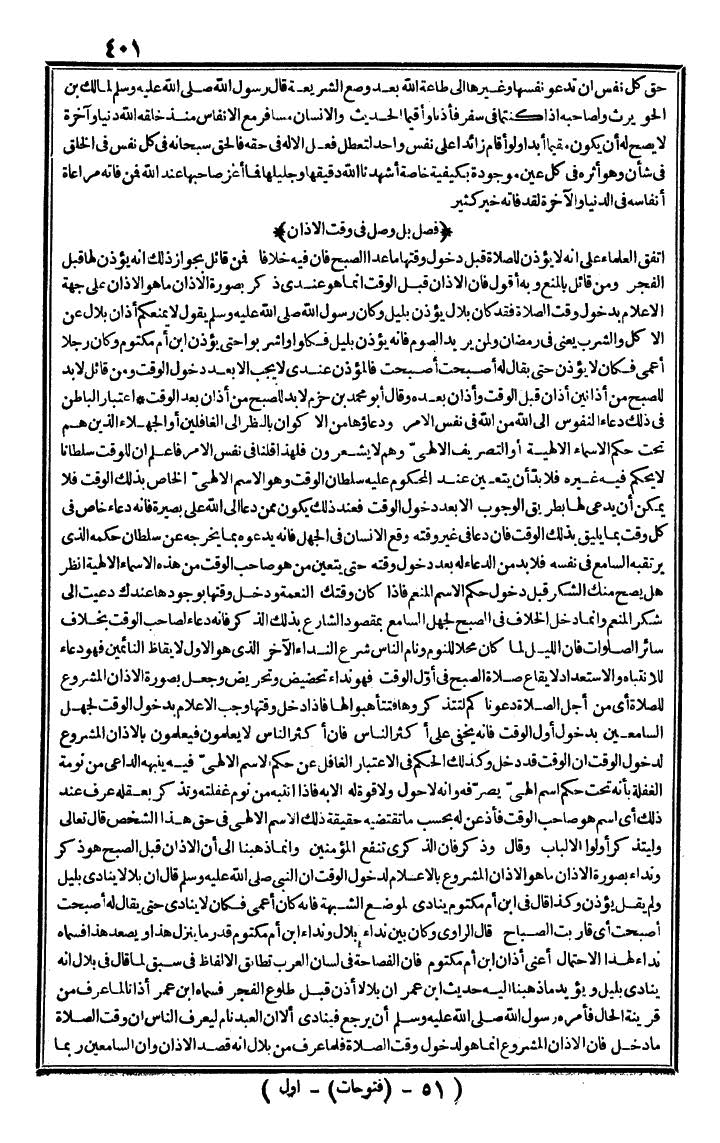 ٤٠١
حق كل نفس ان تدعو نفسها وغيرها الى طاعة الله بعد وضع الشريعة قال رسول الله صلى الله عليه وسلم لمالك بن
الحويرث ولصاحبه اذا كنتما فى سفر فأذنا وأقيما الحديث والانسان مسافر مع الانفاس منذ خلقه الله دنيا وآخرة
لا يصح له أن يكون مقيما أبدا ولو أقام زائدا على نفس واحد لتعطل فعل الاله فى حقه فالحق سبحانه فى كل نفس فى الخلق
فى شأن وهو أثره فى كل عين موجودة بكيفية خاصة أشهدنا الله دقيقها وجليلها فما أعز صاحبها عند الله فمن فاته مراعاة
أنفاسه فى الدنيا والآخرة لقد فاته خير كثير
﴿فصل بل وصل فى وقت الاذان﴾
اتفق العلماء على انه لا يؤذن للصلاة قبل دخول وقتها ماعدا الصبح فان فيه خلافا فمن قائل بجواز ذلك انه يؤذن لها قبل
الفجر ومن قائل بالمنع وبه أقول فان الاذان قبل الوقت انما هو عندى ذكر بصورة الاذان ما هو الاذان على جهة
الاعلام بدخول وقت الصلاة فقد كان بلال يؤذن بليل وكان رسول الله صلى الله عليه وسلم يقول لا يمنعكم أذان بلال عن
الاكل والشرب يعنى فى رمضان ولمن يريد الصوم فانه يؤذن بليل فكلوا واشربوا حتى يؤذن ابن أم مكتوم وكان رجلا
أعمى فكان لا يؤذن حتى يقال له أصبحت أصبحت فالمؤذن عندى لا يجب الا بعد دخول الوقت ومن قائل لابد
للصبح من أذانين أذان قبل الوقت وأذان بعده وقال أبو محمد بن حزم لابد للصبح من أذان بعد الوقت * اعتبار الباطن
فى ذلك دعاء النفوس الى الله من الله فى نفس الامر ودعاؤها من الاكوان بالنظر الى الغافلين أو الجهلاء الذين هم
تحت حكم الاسماء الالهية أو التصريف الالهىّ وهم لا يشعرون فلهذا قلنا فى نفس الامر فاعلم ان للوقت سلطانا
لا يحكم فيه غيره فلابدّ أن يتعين عند المحكوم عليه سلطان الوقت وهو الاسم الالهىّ الخاص بذلك الوقت فلا
يمكن أن يدعى لها بطريق الوجوب الا بعد دخول الوقت فعند ذلك يكون ممن دعا الى الله على بصيرة فانه دعاء خاص فى
كل وقت بما يليق بذلك الوقت فان دعا فى غير وقته وقع الانسان فى الجهل فانه يدعوه بما يخرجه عن سلطان حكمه الذى
يرتقبه السامع فى نفسه فلابد من الدعاء له بعد دخول وقته حتى يتعين من هو صاحب الوقت من هذه الاسماء الالهية انظر
هل يصح منك الشكر قبل دخول حكم الاسم المنعم فاذا كان وقتك النعمة ودخل وقتها بوجودها عندك دعيت الى
شكر المنعم وانما دخل الخلاف فى الصبح لجهل السامع بمقصود الشارع بذلك الذكر فانه دعاء لصاحب الوقت بخلاف
سائر الصلوات فان الليل لما كان محلا للنوم ونام الناس شرع النداء الآخر الذى هو الاول لايقاظ النائمين فهو دعاء
للانتباه والاستعداد لايقاع صلاة الصبح فى أوّل الوقت فهو نداء تحضيض وتحريض وجعل بصورة الاذان المشروع
للصلاة أى من أجل الصلاة دعوناكم لتتذكروها فتتأهبوا لها فاذا دخل وقتها وجب الاعلام بدخول الوقت لجهل
السامعين بدخول أول الوقت فانه يخفى على أكثر الناس فان أكثر الناس لا يعلمون فيعلمون بالاذان المشروع
لدخول الوقت ان الوقت قد دخل وكذلك الحكم فى الاعتبار الغافل عن حكم الاسم الالهىّ فيه ينبهه الداعى من نومة
الغفلة بأنه تحت حكم اسم الهىّ يصرّفه وانه لا حول ولا قوة له الا به فاذا انتبه من نوم غفلته وتذكر بعقله عرف عند
ذلك أى اسم هو صاحب الوقت فأذعن له بحسب ما تقتضيه حقيقة ذلك الاسم الالهى فى حق هذا الشخص قال تعالى
وليتذكر أولوا الالباب وقال وذكر فان الذكرى تنفع المؤمنين وانما ذهبنا الى أن الاذان قبل الصبح هو ذكر
ونداء بصورة الاذان ما هو الاذان المشروع بالاعلام لدخول الوقت ان النبى صلى الله عليه وسلم قال ان بلالا ينادى بليل
ولم يقل يؤذن وكذا قال فى ابن أم مكتوم ينادى لموضع الشبهة فانه كان أعمى فكان لا ينادى حتى يقال له أصبحت
أصبحت أى قاربت الصباح قال الراوى وكان بين نداء بلال ونداء ابن أم مكتوم قدر ما ينزل هذا ويصعد هذا فسماه
نداء لهذا الاحتمال أعنى أذان ابن أم مكتوم فان الفصاحة فى لسان العرب تطابق الالفاظ فى سبق لما قال فى بلال انه
ينادى بليل ويؤيد ما ذهبنا اليه حديث ابن عمر ان بلالا أذن قبل طلوع الفجر فسماه ابن عمر أذانا لما عرف من
قرينة الحال فأمره رسول الله صلى الله عليه وسلم أن يرجع فينادى ألا ان العبد نام ليعرف الناس ان وقت الصلاة
ما دخل فان الاذان المشروع انما هو لدخول وقت الصلاة فلما عرف من بلال انه قصد الاذان وان السامعين ربما
( ٥١ - (فتوحات) - اول )